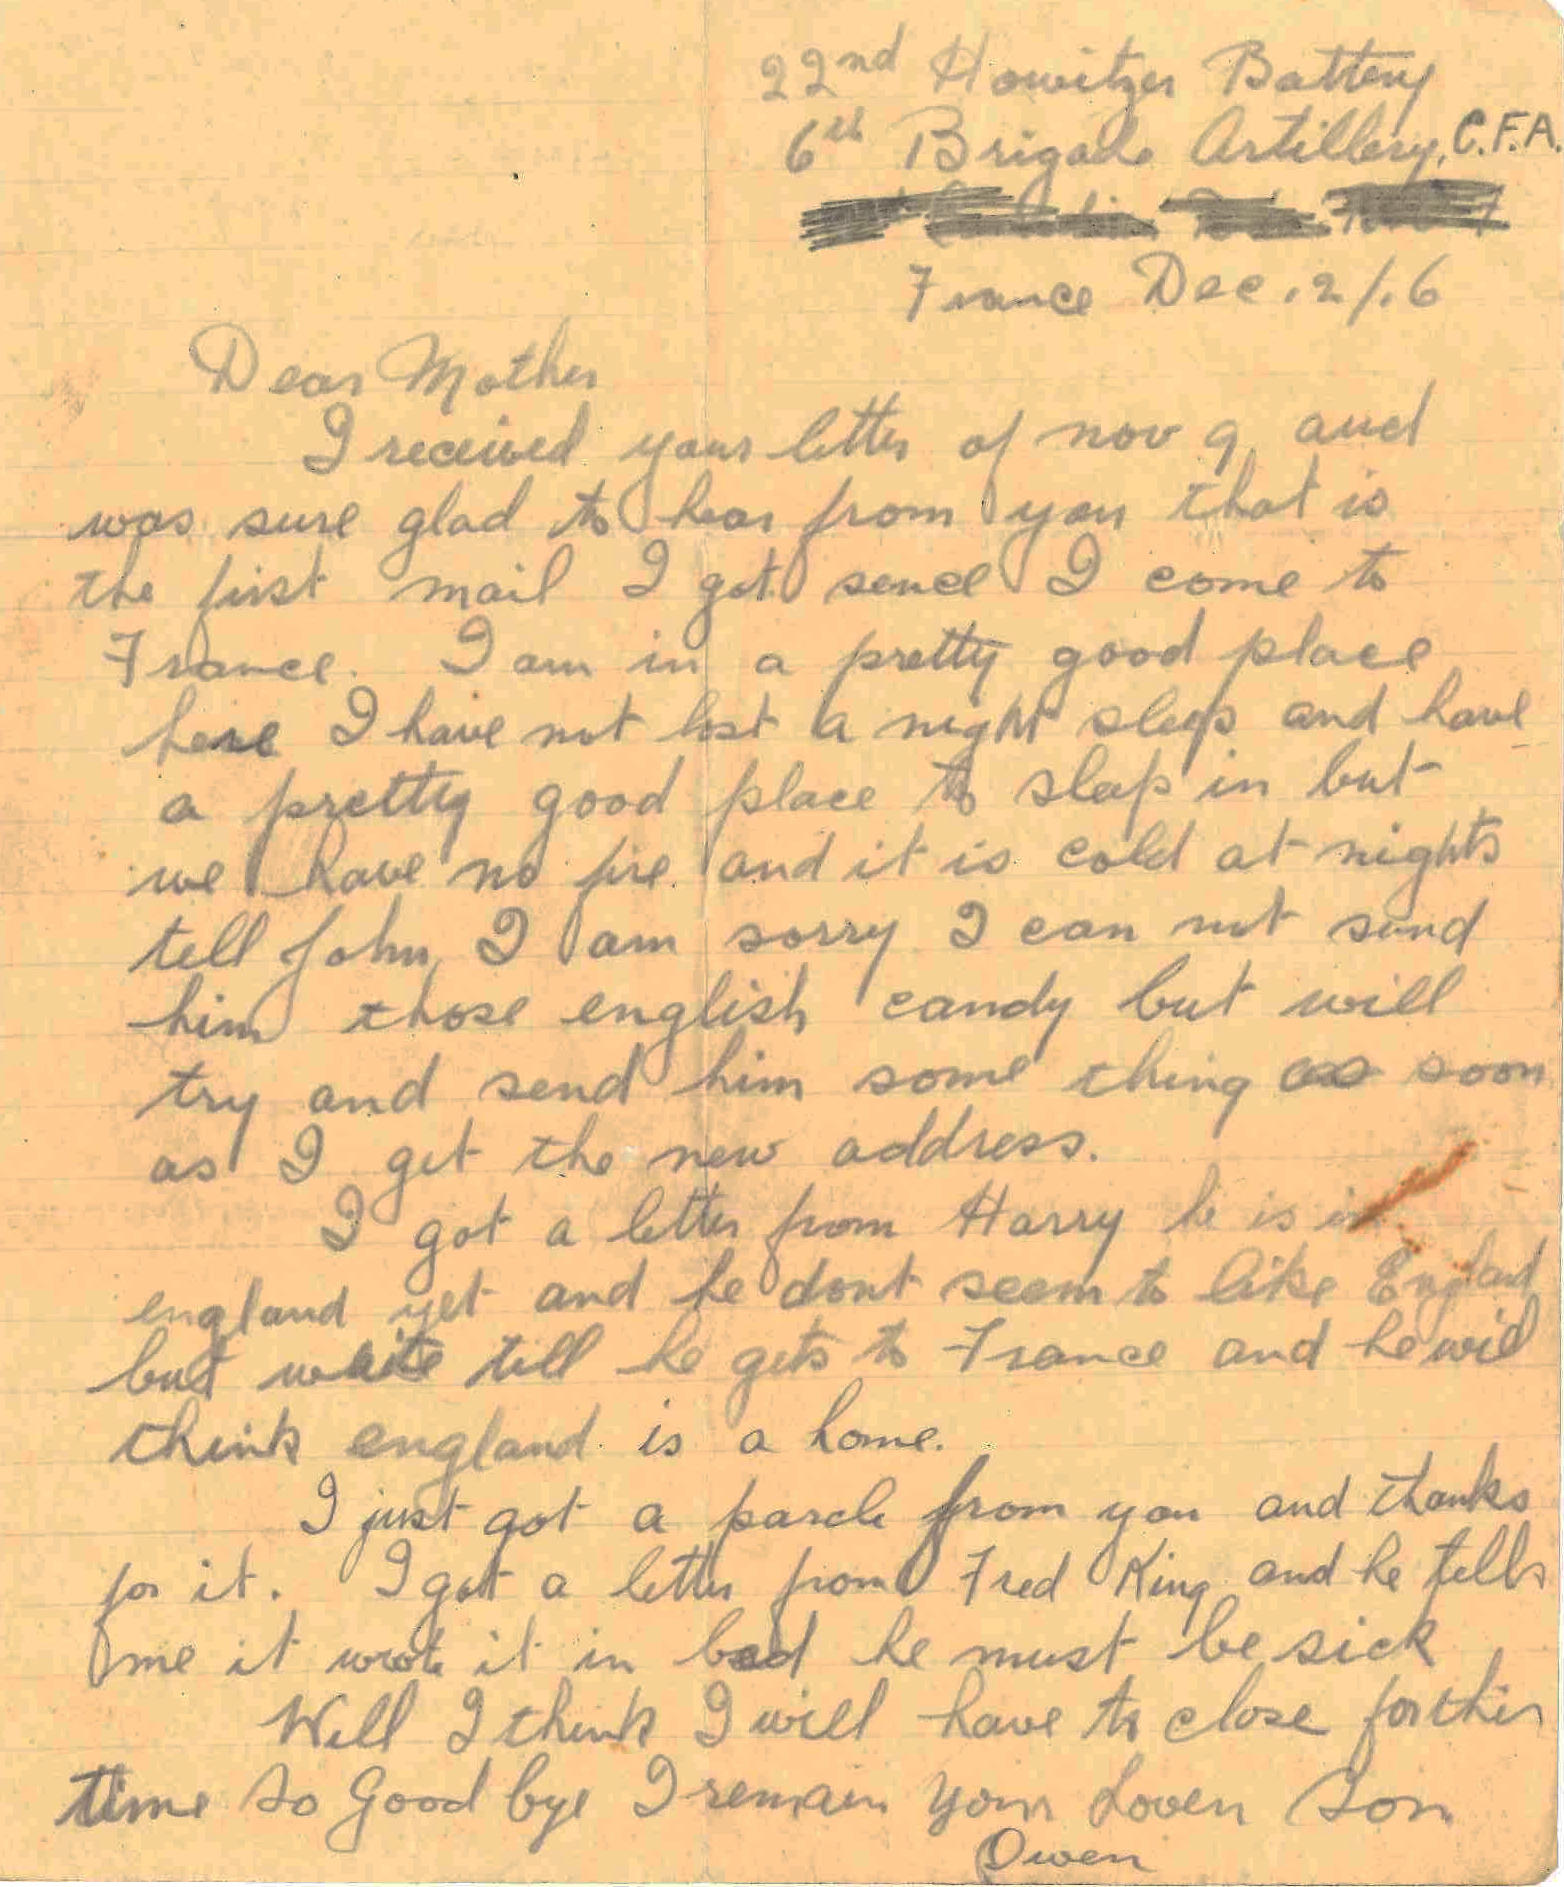 22nd Howitzer Battery
6th Brigade Artillery, C.F.A.
France Dec. 2/.6
Dear Mother
I received your letter of nov 9 and
was sure glad to hear from you that is
the first mail I got sence I come to
France. I am in a pretty good place
here I have not lost a night sleep and have
a pretty good place to sleep in but
we have no fire and it is cold at nights
tell John I am sorry I can not send
him those english candy but will
try and send him some thing as soon
as I get the new address.
I got a letter from Harry he is in
england yet and he dont seem to like England
but waite till he gets to France and he will
think england is a home.
I just got a parcle from you and thanks
for it. I got a letter from Fred King and he tells
me it wrote it in bed he must be sick
Well I think I will have to close for this
time so Good bye I remain your Loven Son
Owen